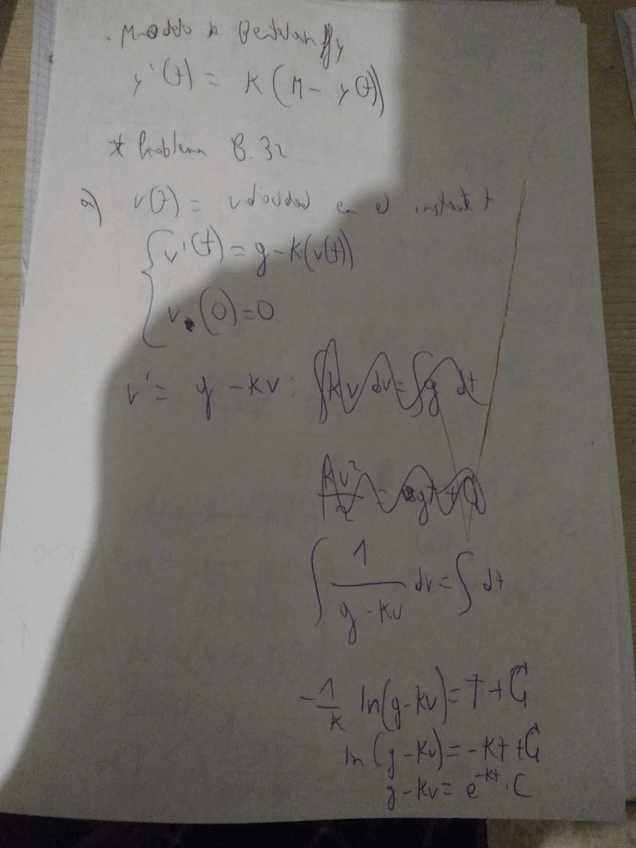 . Modelo de Bertalanffy
y'(t) = K(M - y(t))
* Problema 8.32
a) v(t) = velocidad en el instante t
v'(t) = g - K(v(t))
v(0) = 0
v' = g - kv :
∫ 1/(g - kv) dv = ∫ dt
-1/k ln(g - kv) = t + C₁
ln(g - kv) = -kt + C₁
g - kv = e^{-kt} · C